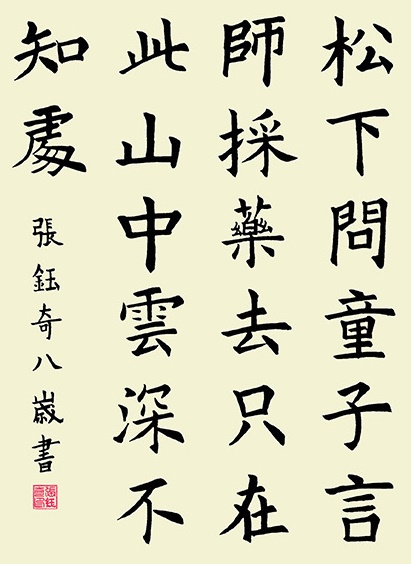 松下問童子言
師採藥去只在
此山中雲深不
知處
張鈺奇八歲書